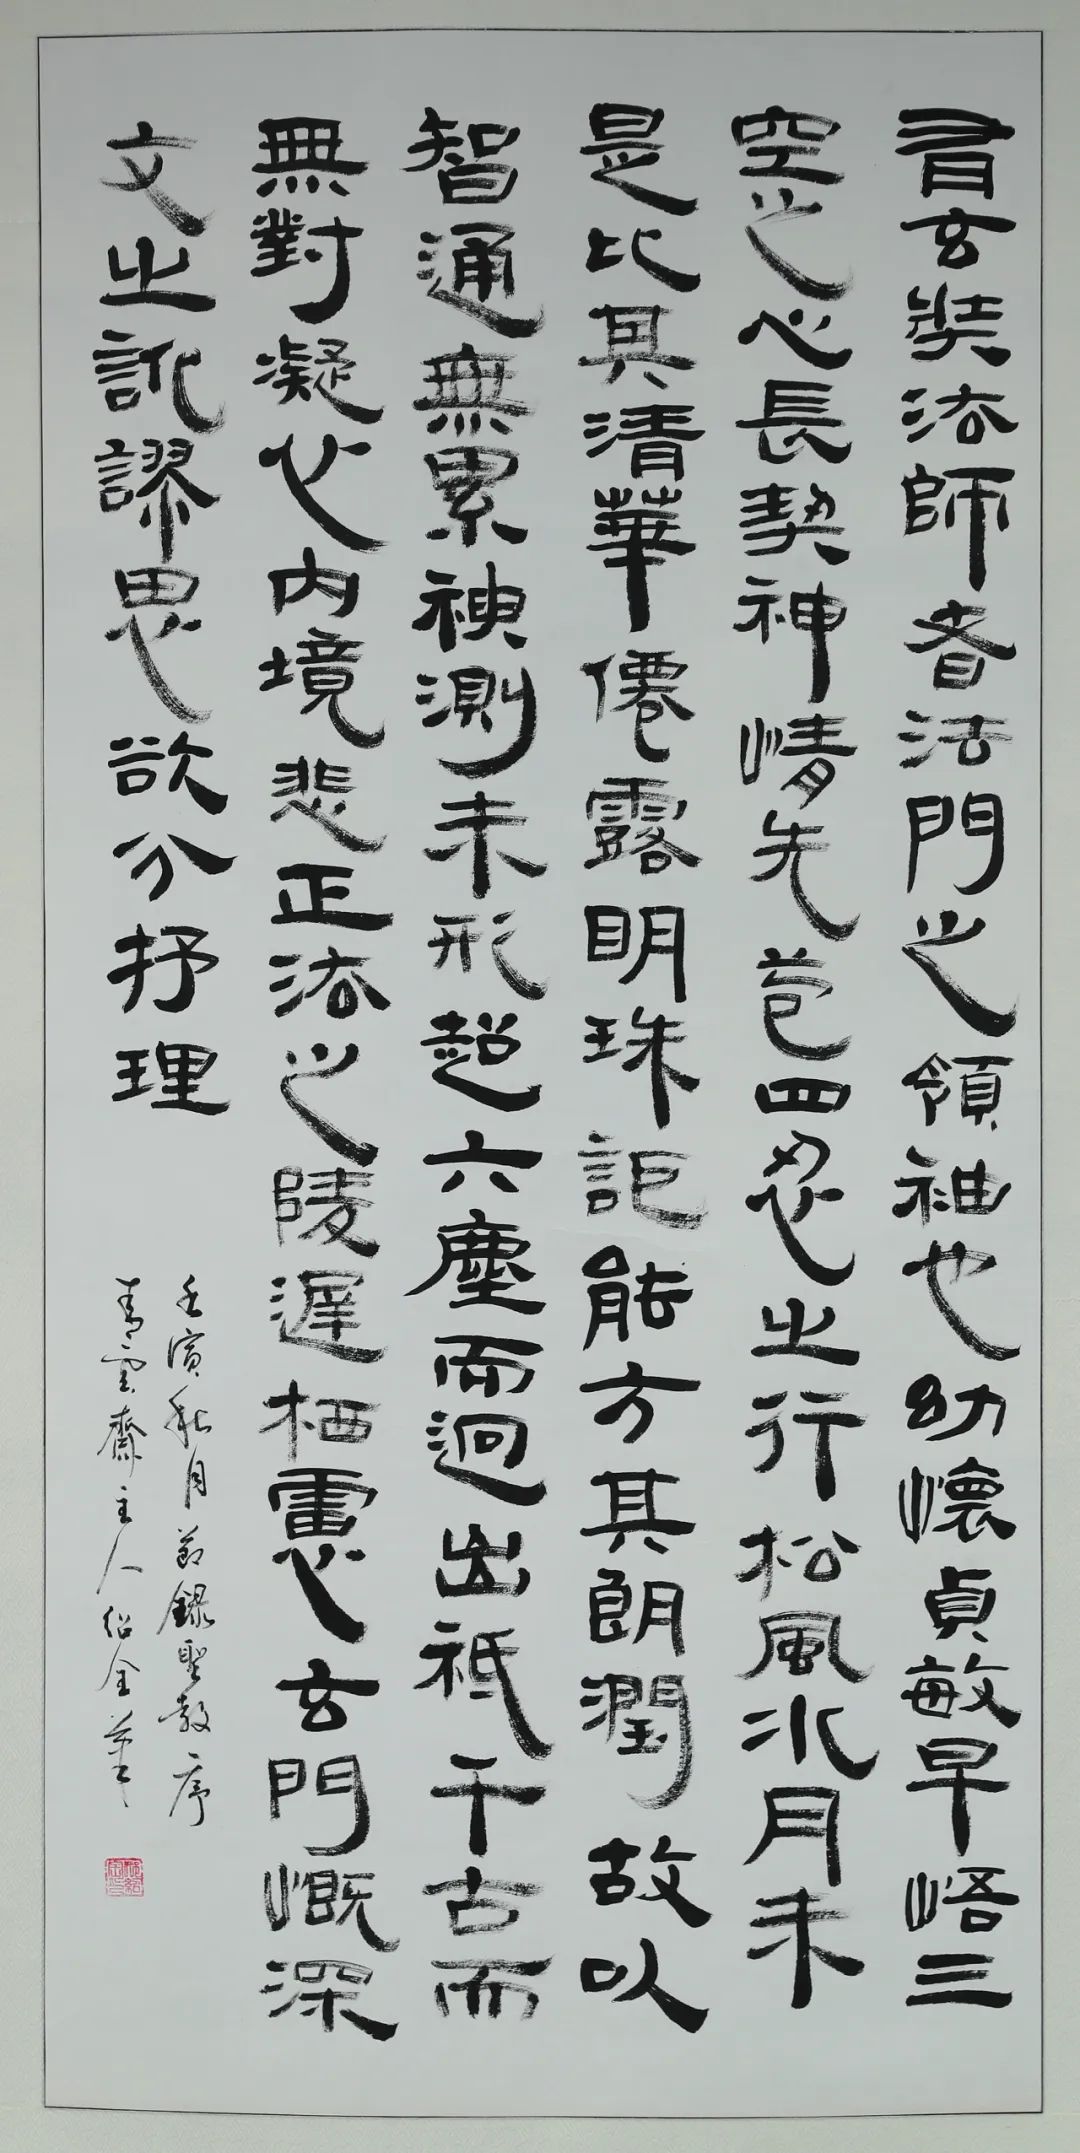 有玄奘法師者法門之領袖也幼懷貞敏早悟三
空之心長契神情先苞四忍之行松風水月未
是比其清華僊露明珠詎能方其朗潤故以
智通無累神測未形超六塵而迥出祇千古而
無對凝心內境悲正法之陵遲栖慮玄門慨深
文之訛謬思欲分抒理
壬寅秋月節錄聖教序
青雲齋主人紹全筆